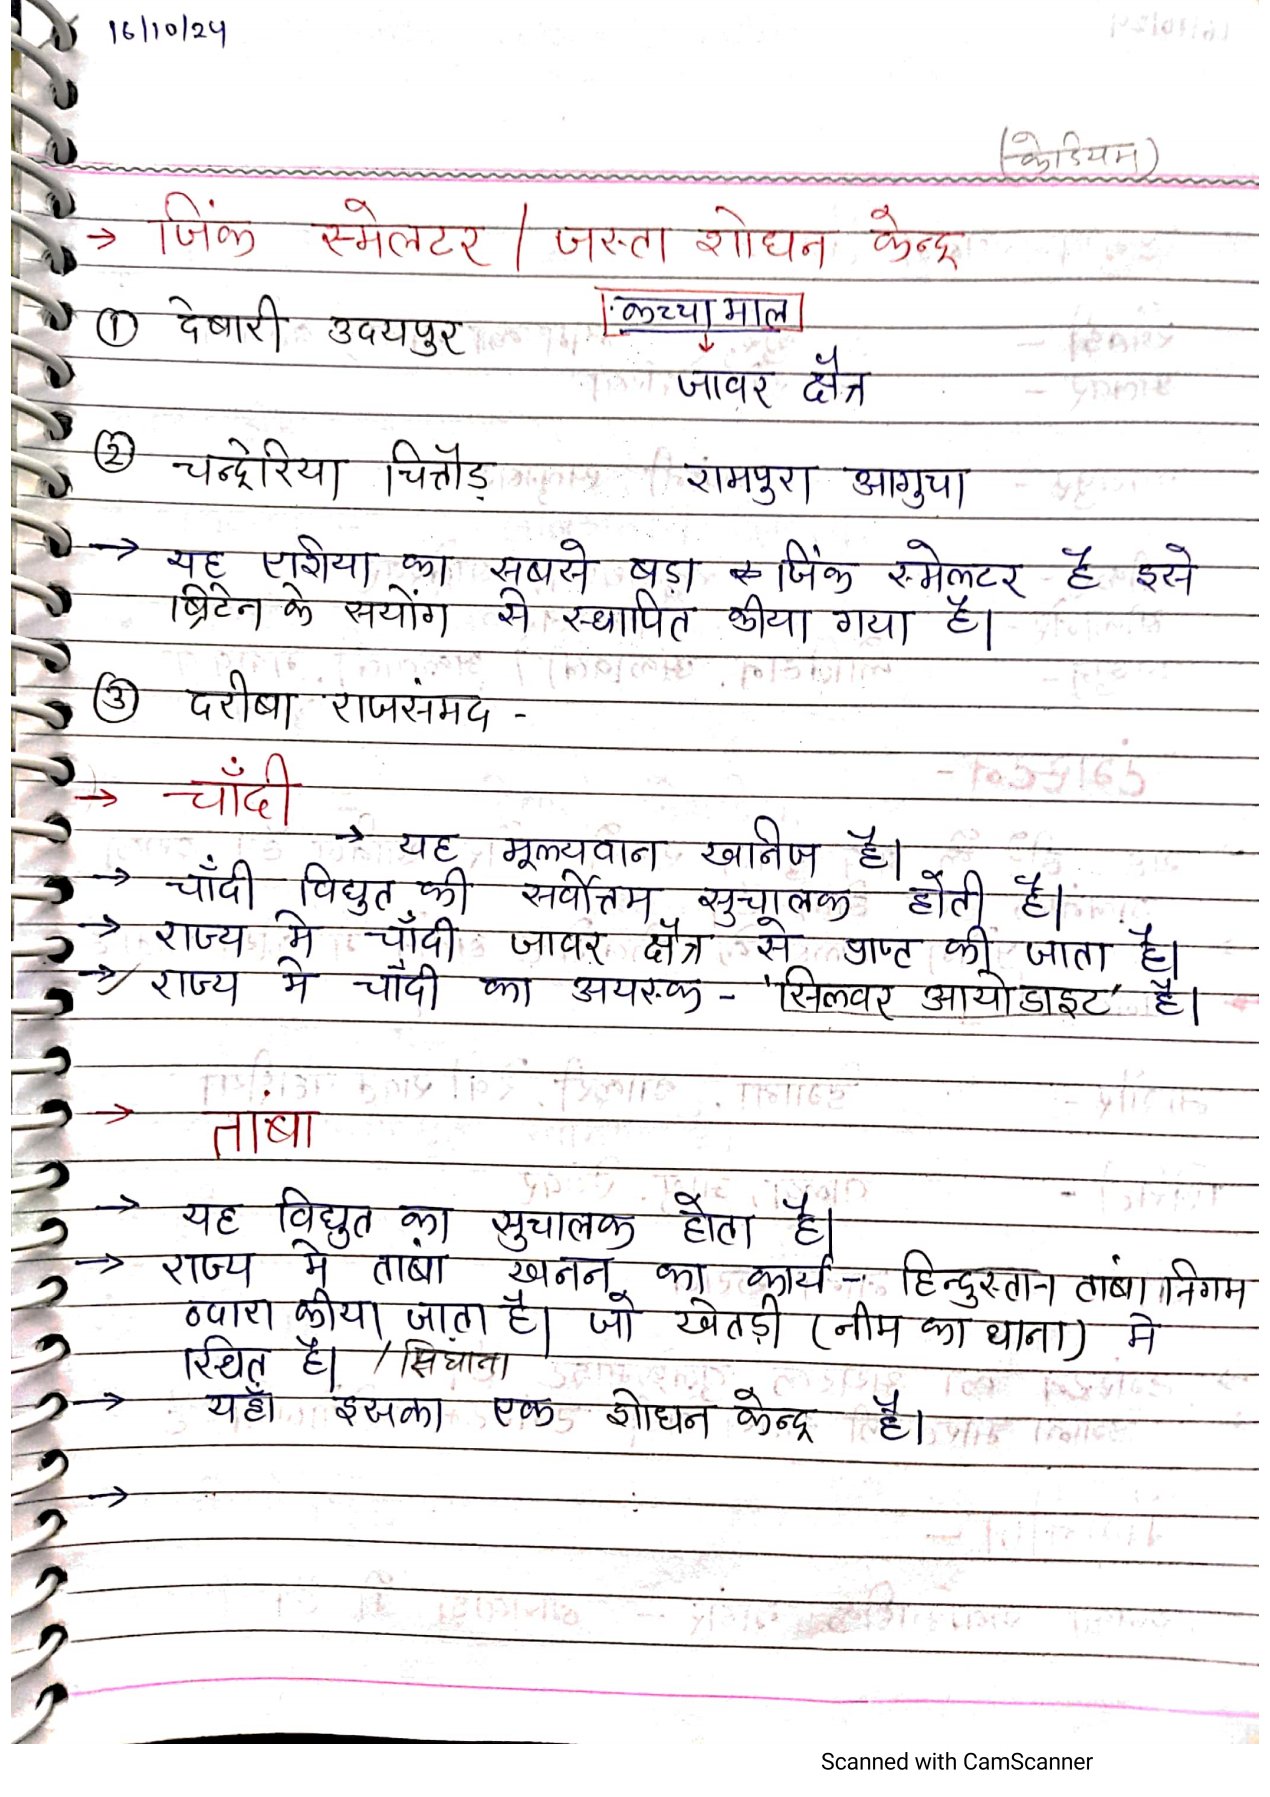 16/10/24
(केडियम)
→ जिंक स्मेलटर / जस्ता शोधन केन्द्र
① देबारी उदयपुर कच्चा माल
↓
जावर क्षैत्र
② चन्द्रेरिया चित्तौड़ रामपुरा आगुचा
→ यह एशिया का सबसे बड़ा जिंक स्मेलटर है इसे
ब्रिटेन के सयोंग से स्थापित कीया गया है।
③ दरीबा राजसंमद -
→ चाँदी
→ यह मूल्यवान खनिज है।
→ चाँदी विद्युत की सर्वोत्तम सुचालक होती है।
→ राज्य मे चाँदी जावर क्षैत्र से प्राप्त की जाता है।
→ राज्य मे चाँदी का अयस्क - 'सिलवर आयोडाइट' है।
→ तांबा
→ यह विद्युत का सुचालक होता है।
→ राज्य मे तांबा खनन का कार्य - हिन्दुस्तान तांबा निगम
व्दारा कीया जाता है। जो खेतड़ी (नीम का थाना) मे
स्थित है। / सिघाना
→ यहाँ इसका एक शोधन केन्द्र है।
→
Scanned with CamScanner